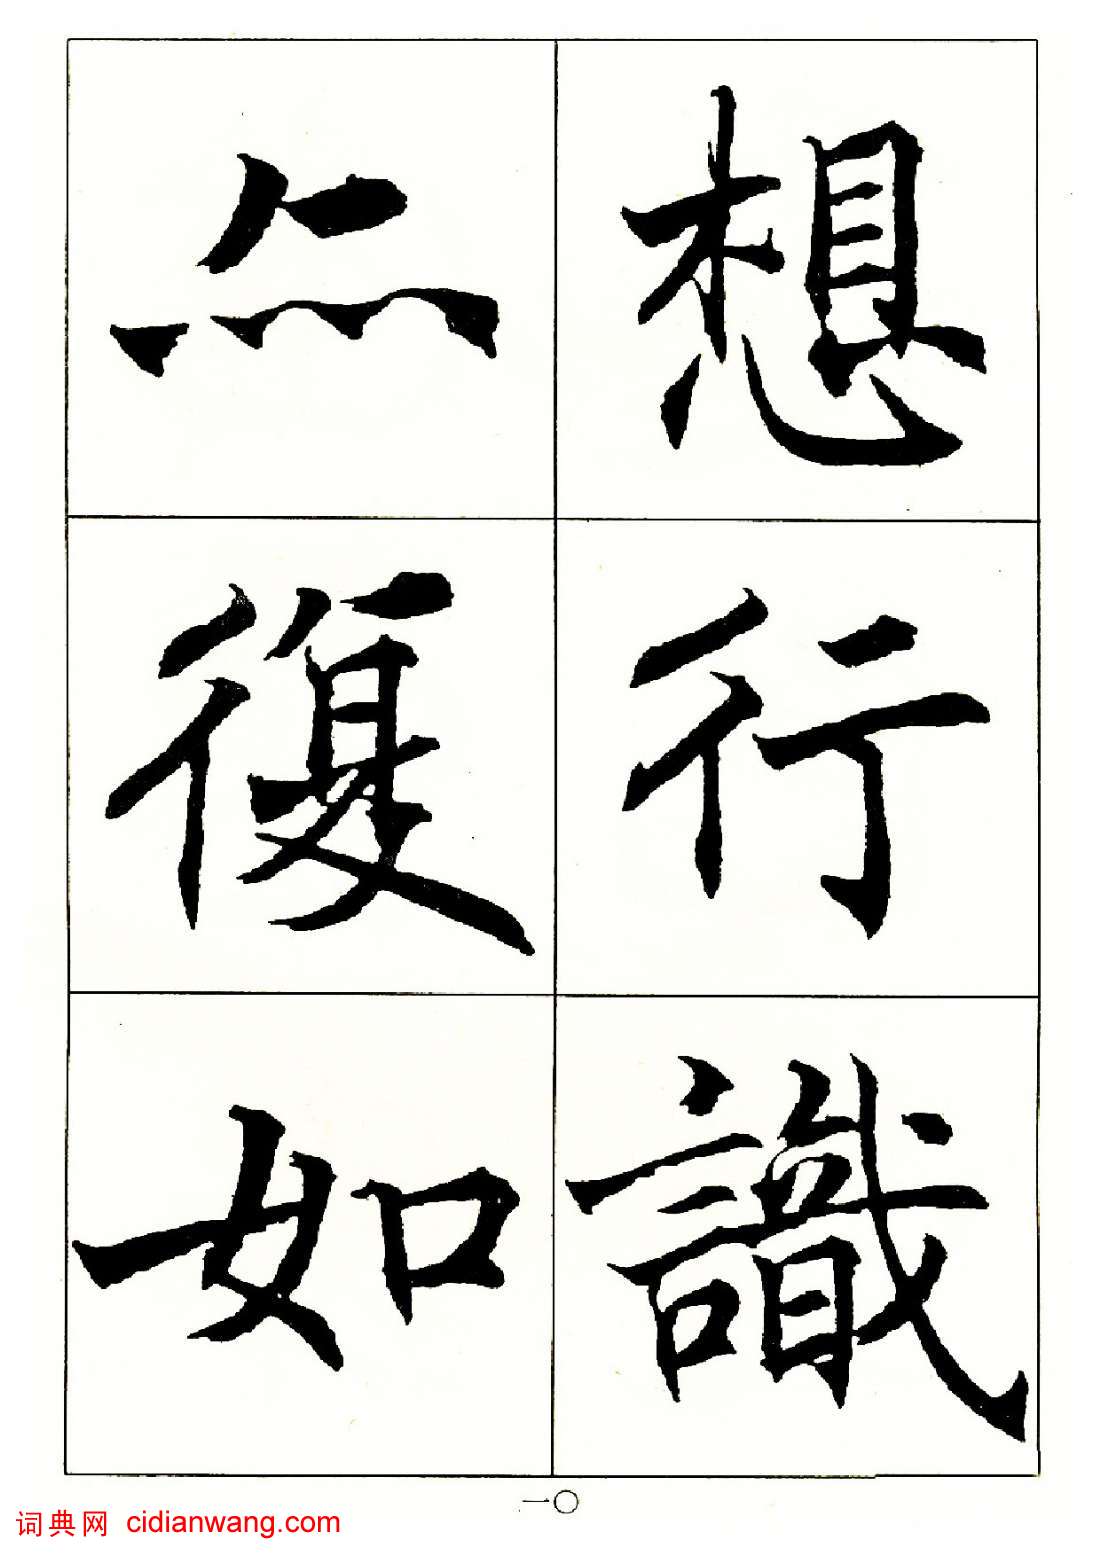 想行識
亦復如
一〇
词典网 cidianwang.com